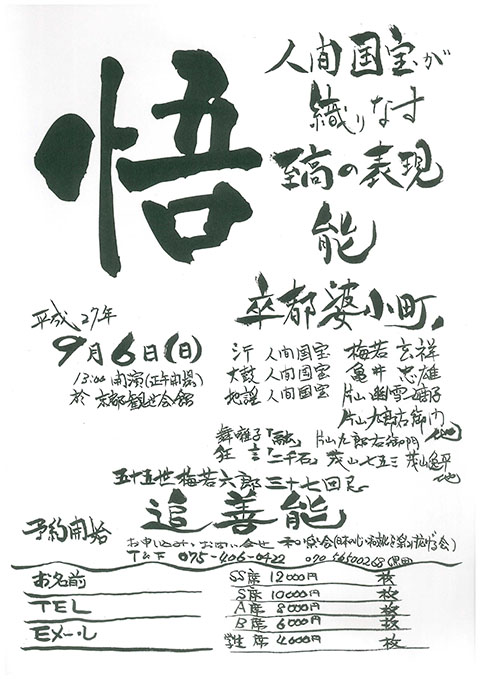 悟
人間国宝が
織りなす
至高の表現
能
卒都婆小町
平成27年
9月6日(日)
13:00開演(正午開場)
於 京都観世会館
シテ 人間国宝 梅若玄祥
大鼓 人間国宝 亀井忠雄
地謡 人間国宝 片山幽雪
片山九郎右衛門
他
舞囃子「融」片山九郎右衛門
狂言「二千石」茂山七五三 茂山逸平
他
五十五世梅若六郎三十七回忌
追善能
予約開始
お申し込み・お問い合せ 和の会
TEL 075-406-0422
お名前
TEL
Eメール
SS席 12000円 枚
S席 10000円 枚
A席 8000円 枚
B席 6000円 枚
学生席 4000円 枚